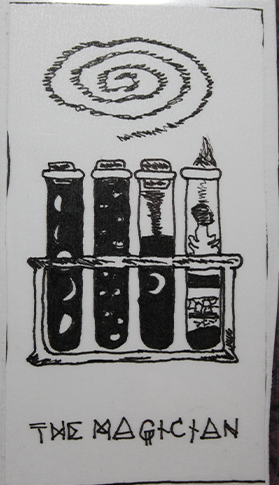 THE MAGICIAN